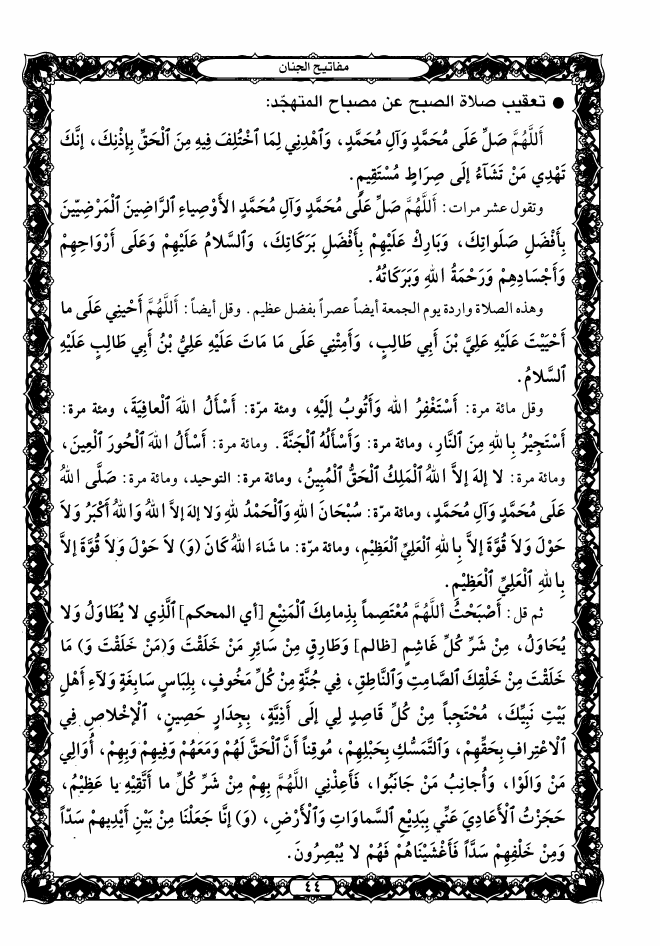 مفاتيح الجنان
● تعقيب صلاة الصبح عن مصباح المتهجّد:
أَللَّهُمَّ صَلِّ عَلَى مُحَمَّدٍ وَآلِ مُحَمَّدٍ، وَٱهْدِنِي لِمَا ٱخْتُلِفَ فِيهِ مِنَ ٱلْحَقِّ بِإِذْنِكَ، إِنَّكَ
تَهْدِي مَنْ تَشَآءُ إِلَى صِرَاطٍ مُسْتَقِيمٍ.
وتقول عشر مرات: أَللَّهُمَّ صَلِّ عَلَى مُحَمَّدٍ وَآلِ مُحَمَّدٍ الأَوْصِياءِ ٱلرَّاضِينَ ٱلْمَرْضِيِّينَ
بِأَفْضَلِ صَلَواتِكَ، وَبَارِكْ عَلَيْهِمْ بِأَفْضَلِ بَرَكَاتِكَ، وَٱلسَّلامُ عَلَيْهِمْ وَعَلَى أَرْوَاحِهِمْ
وَأَجْسَادِهِمْ وَرَحْمَةُ اللهِ وَبَرَكَاتُهُ.
وهذه الصلاة واردة يوم الجمعة أيضاً عصراً بفضل عظيم. وقل أيضاً: أَللَّهُمَّ أَحْيِنِي عَلَى ما
أَحْيَيْتَ عَلَيْهِ عَلِيَّ بْنَ أَبِي طَالِبٍ، وَأَمِتْنِي عَلَى مَا مَاتَ عَلَيْهِ عَلِيُّ بْنُ أَبِي طَالِبٍ عَلَيْهِ
ٱلسَّلامُ.
وقل مائة مرة: أَسْتَغْفِرُ الله وَأَتُوبُ إِلَيْهِ، ومئة مرّة: أَسْأَلُ اللهَ ٱلْعافِيَةَ، ومئة مرة:
أَسْتَجِيْرُ بِاللهِ مِنَ ٱلنَّارِ، ومائة مرة: وَأَسْأَلُهُ ٱلْجَنَّةَ. ومائة مرة: أَسْأَلُ اللهَ ٱلْحُورَ ٱلْعِينَ،
ومائة مرة: لا إلهَ إلاَّ اللهُ ٱلْمَلِكُ ٱلْحَقُّ ٱلْمُبِينُ، ومائة مرة: التوحيد، ومائة مرة: صَلَّى اللهُ
عَلَى مُحَمَّدٍ وَآلِ مُحَمَّدٍ، ومائة مرّة: سُبْحَانَ اللهِ وَٱلْحَمْدُ للهِ وَلا إلهَ إلاَّ اللهُ وَاللهُ أَكْبَرُ وَلاَ
حَوْلَ وَلاَ قُوَّةَ إِلاَّ بِاللهِ ٱلْعَلِيِّ ٱلْعَظِيْمِ، ومائة مرّة: ما شَاءَ اللهُ كَانَ (وَ) لاَ حَوْلَ وَلاَ قُوَّةَ إلاَّ
بِاللهِ ٱلْعَلِيِّ ٱلْعَظِيْمِ.
ثم قل: أَصْبَحْتُ أللَّهُمَّ مُعْتَصِماً بِذِمامِكَ ٱلْمَنِيْعِ [أي المحكم] ٱلَّذِي لا يُطَاوَلُ وَلا
يُحَاوَلُ، مِنْ شَرِّ كُلِّ غَاشِمٍ [ظالم] وَطَارِقٍ مِنْ سَائِرِ مَنْ خَلَقْتَ وَ(مَنْ خَلَقْتَ وَ) مَا
خَلَقْتَ مِنْ خَلْقِكَ ٱلصَّامِتِ وَٱلنَّاطِقِ، فِي جُنَّةٍ مِنْ كُلِّ مَخُوفٍ، بِلِبَاسٍ سَابِغَةٍ وَلآءِ أَهْلِ
بَيْتِ نَبِيِّكَ، مُحْتَجِباً مِنْ كُلِّ قَاصِدٍ لِي إلَى أَذِيَّةٍ، بِجِدَارٍ حَصِينٍ، ٱلإِخْلاصِ فِي
ٱلاعْتِرافِ بِحَقِّهِمْ، وَٱلتَّمَسُّكِ بِحَبْلِهِمْ، مُوقِناً أَنَّ ٱلْحَقَّ لَهُمْ وَمَعَهُمْ وَفِيهِمْ وَبِهِمْ، أُوَالِي
مَنْ وَالَوْا، وَأُجانِبُ مَنْ جَانَبُوا، فَأَعِذْنِي اللَّهُمَّ بِهِمْ مِنْ شَرِّ كُلِّ ما أَتَّقِيْهِ يا عَظِيْمُ،
حَجَزْتُ ٱلأَعَادِيَ عَنِّي بِبَدِيْعِ ٱلسَّماوَاتِ وَٱلأَرْضِ، (وَ) إنَّا جَعَلْنَا مِنْ بَيْنِ أَيْدِيهِمْ سَدّاً
وَمِنْ خَلْفِهِمْ سَدّاً فَأَغْشَيْنَاهُمْ فَهُمْ لا يُبْصِرُونَ.
٤٤